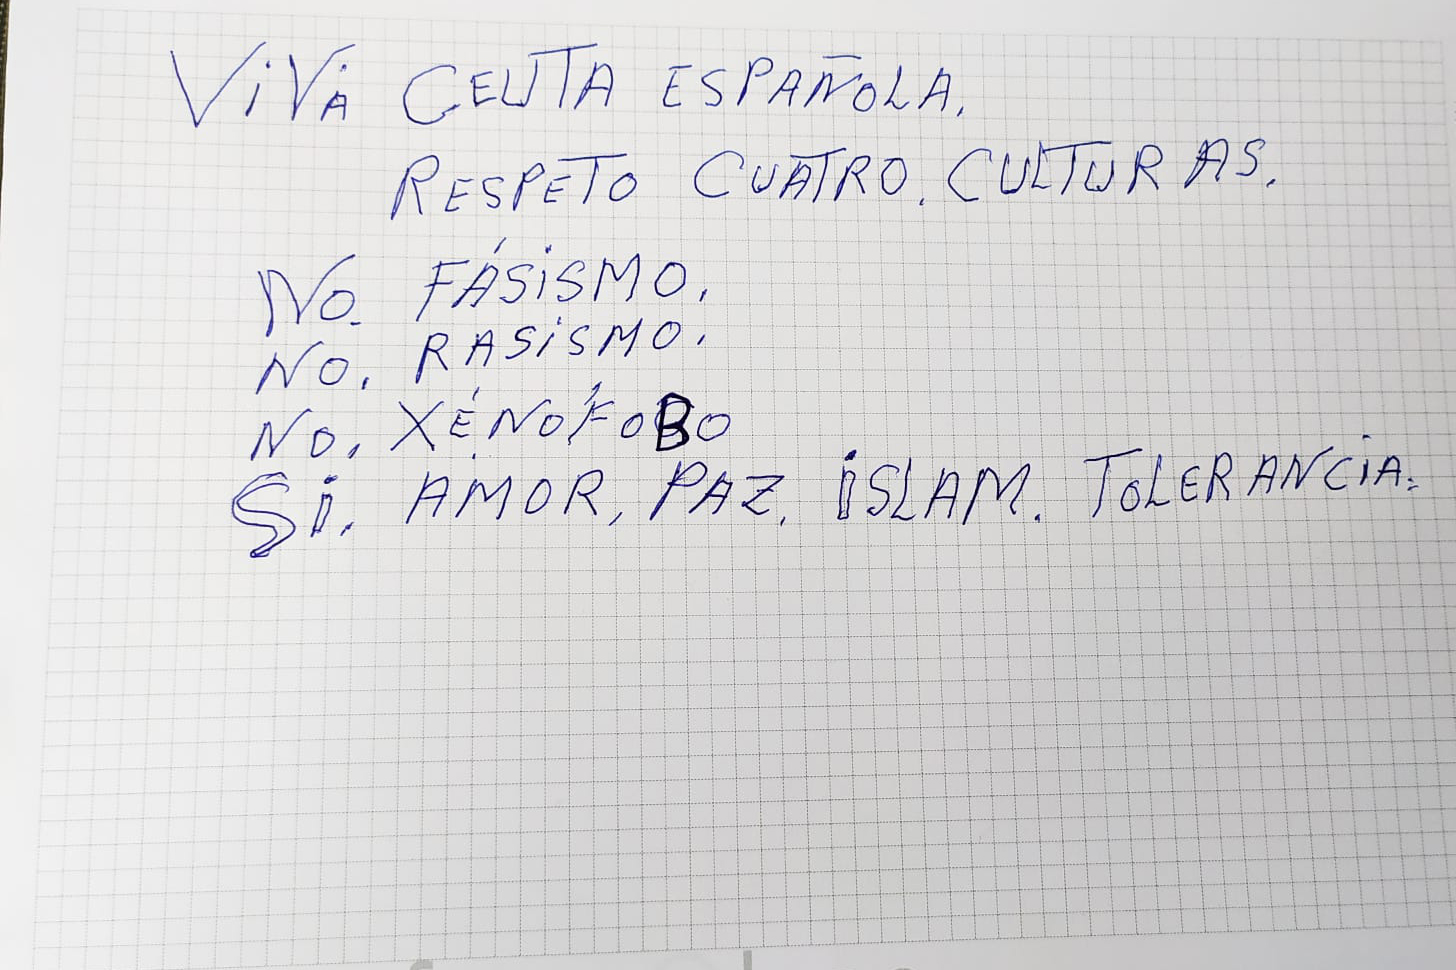 ViVA CEUTA ESPAÑOLA.
RESPETO CUATRO. CULTURAS.
NO. FÁSiSMO.
NO. RASiSMO.
NO. XÉNOFOBO
Si. AMOR, PAZ. iSLAM. TOLERANCiA.